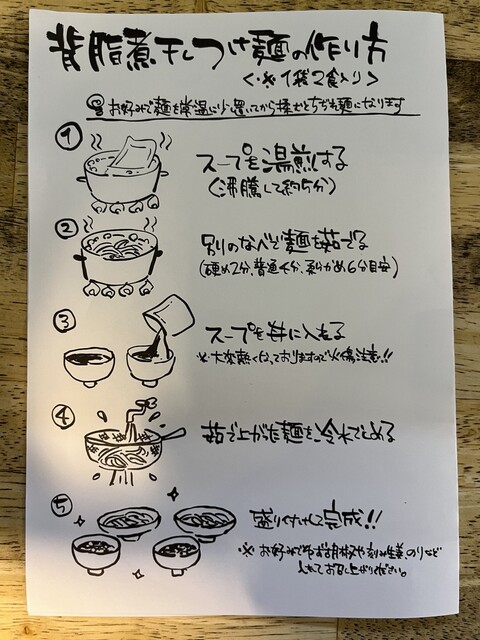 背脂煮干しつけ麺の作り方
<※1袋2食入り>
お好みで麺を常温に少し置いてから揉むとちぢれ麺になります
①
スープを湯煎する
(沸騰して約5分)
②
別のなべで麺を茹でる
(硬め2分、普通4分、柔らかめ6分目安)
③
スープを丼に入れる
※大変熱くなっておりますので火傷注意!!
④
茹で上がった麺を冷水でしめる
⑤
盛り付けして完成!!
※お好みでゆず胡椒や刻み生姜、のりなど
入れてお召し上がりください。